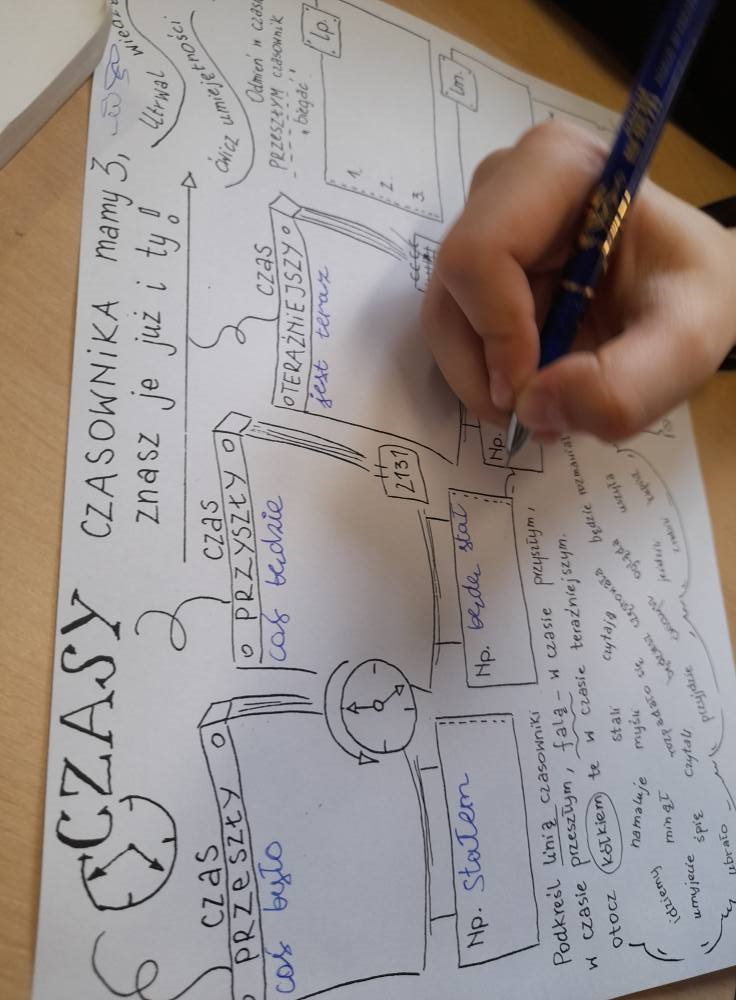 CZASY
CZASOWNIKA mamy 3,
znasz je już i ty!
Utrwal
Ćwicz umiejętności
czas
PRZESZŁY
coś było
Np. Stałem
czas
PRZYSZŁY
coś będzie
2131
Np. będę stał
czas
TERAŹNIEJSZY
jest teraz
Np.
Odmień w czasie
PRZESZŁYM czasownik
"biegać".
lp.
1.
2.
3.
lm.
Podkreśl linią czasowniki
w czasie przeszłym, falą - w czasie przyszłym,
otocz kółkiem te w czasie teraźniejszym.
idziemy namaluje stali czytają będzie rozmawiał
minął myśli się
umyjecie śpię czytali przyjdzie
ubrało